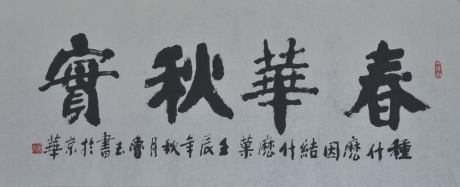 春華秋實
種什麼因結什麼菓壬辰年秋月魯玉書於京華